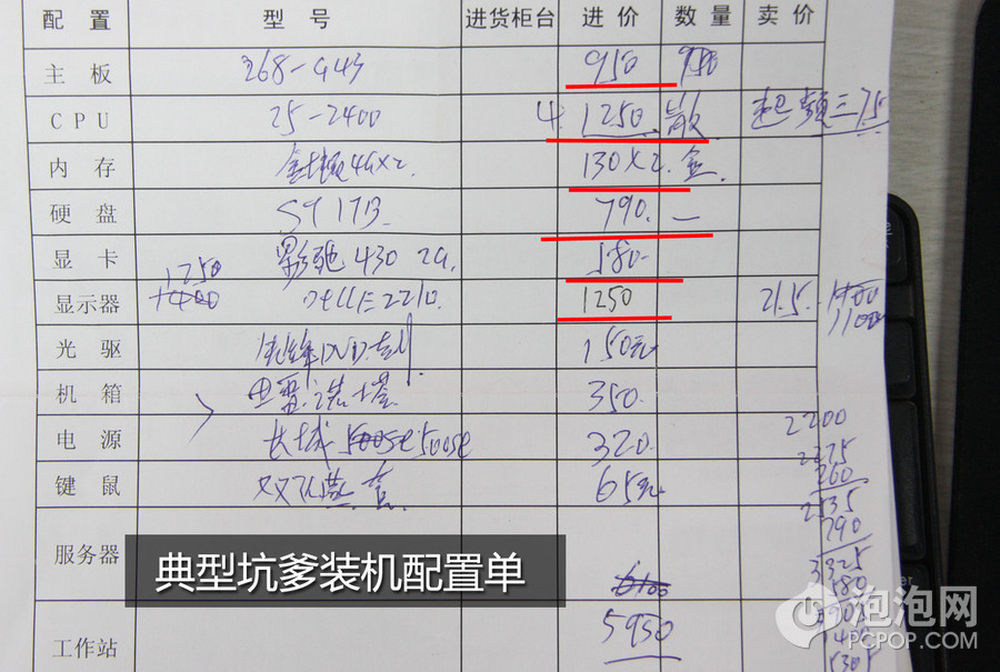 配 置 型 号 进货柜台 进 价 数 量 卖 价
主 板 268-G43 950 950
CPU 25-2400 4 1250. 散 超频三75
内 存 金士顿4G×2. 130×2. 金.
硬 盘 ST 1713 790. —
显 卡 影驰 430 2G. 580-
1250
显示器 1400 DELL 2210. 1250 21.5. 1400
1100
光 驱 先锋DVD 150元
机 箱 350.
电 源 长城 500SE 500SE 320.
键 鼠 双飞燕 套 65元
2200
2275
260
2535
790
服务器 3325
典型坑爹装机配置单
6100
5950
工作站
泡泡网
PCPOP.COM